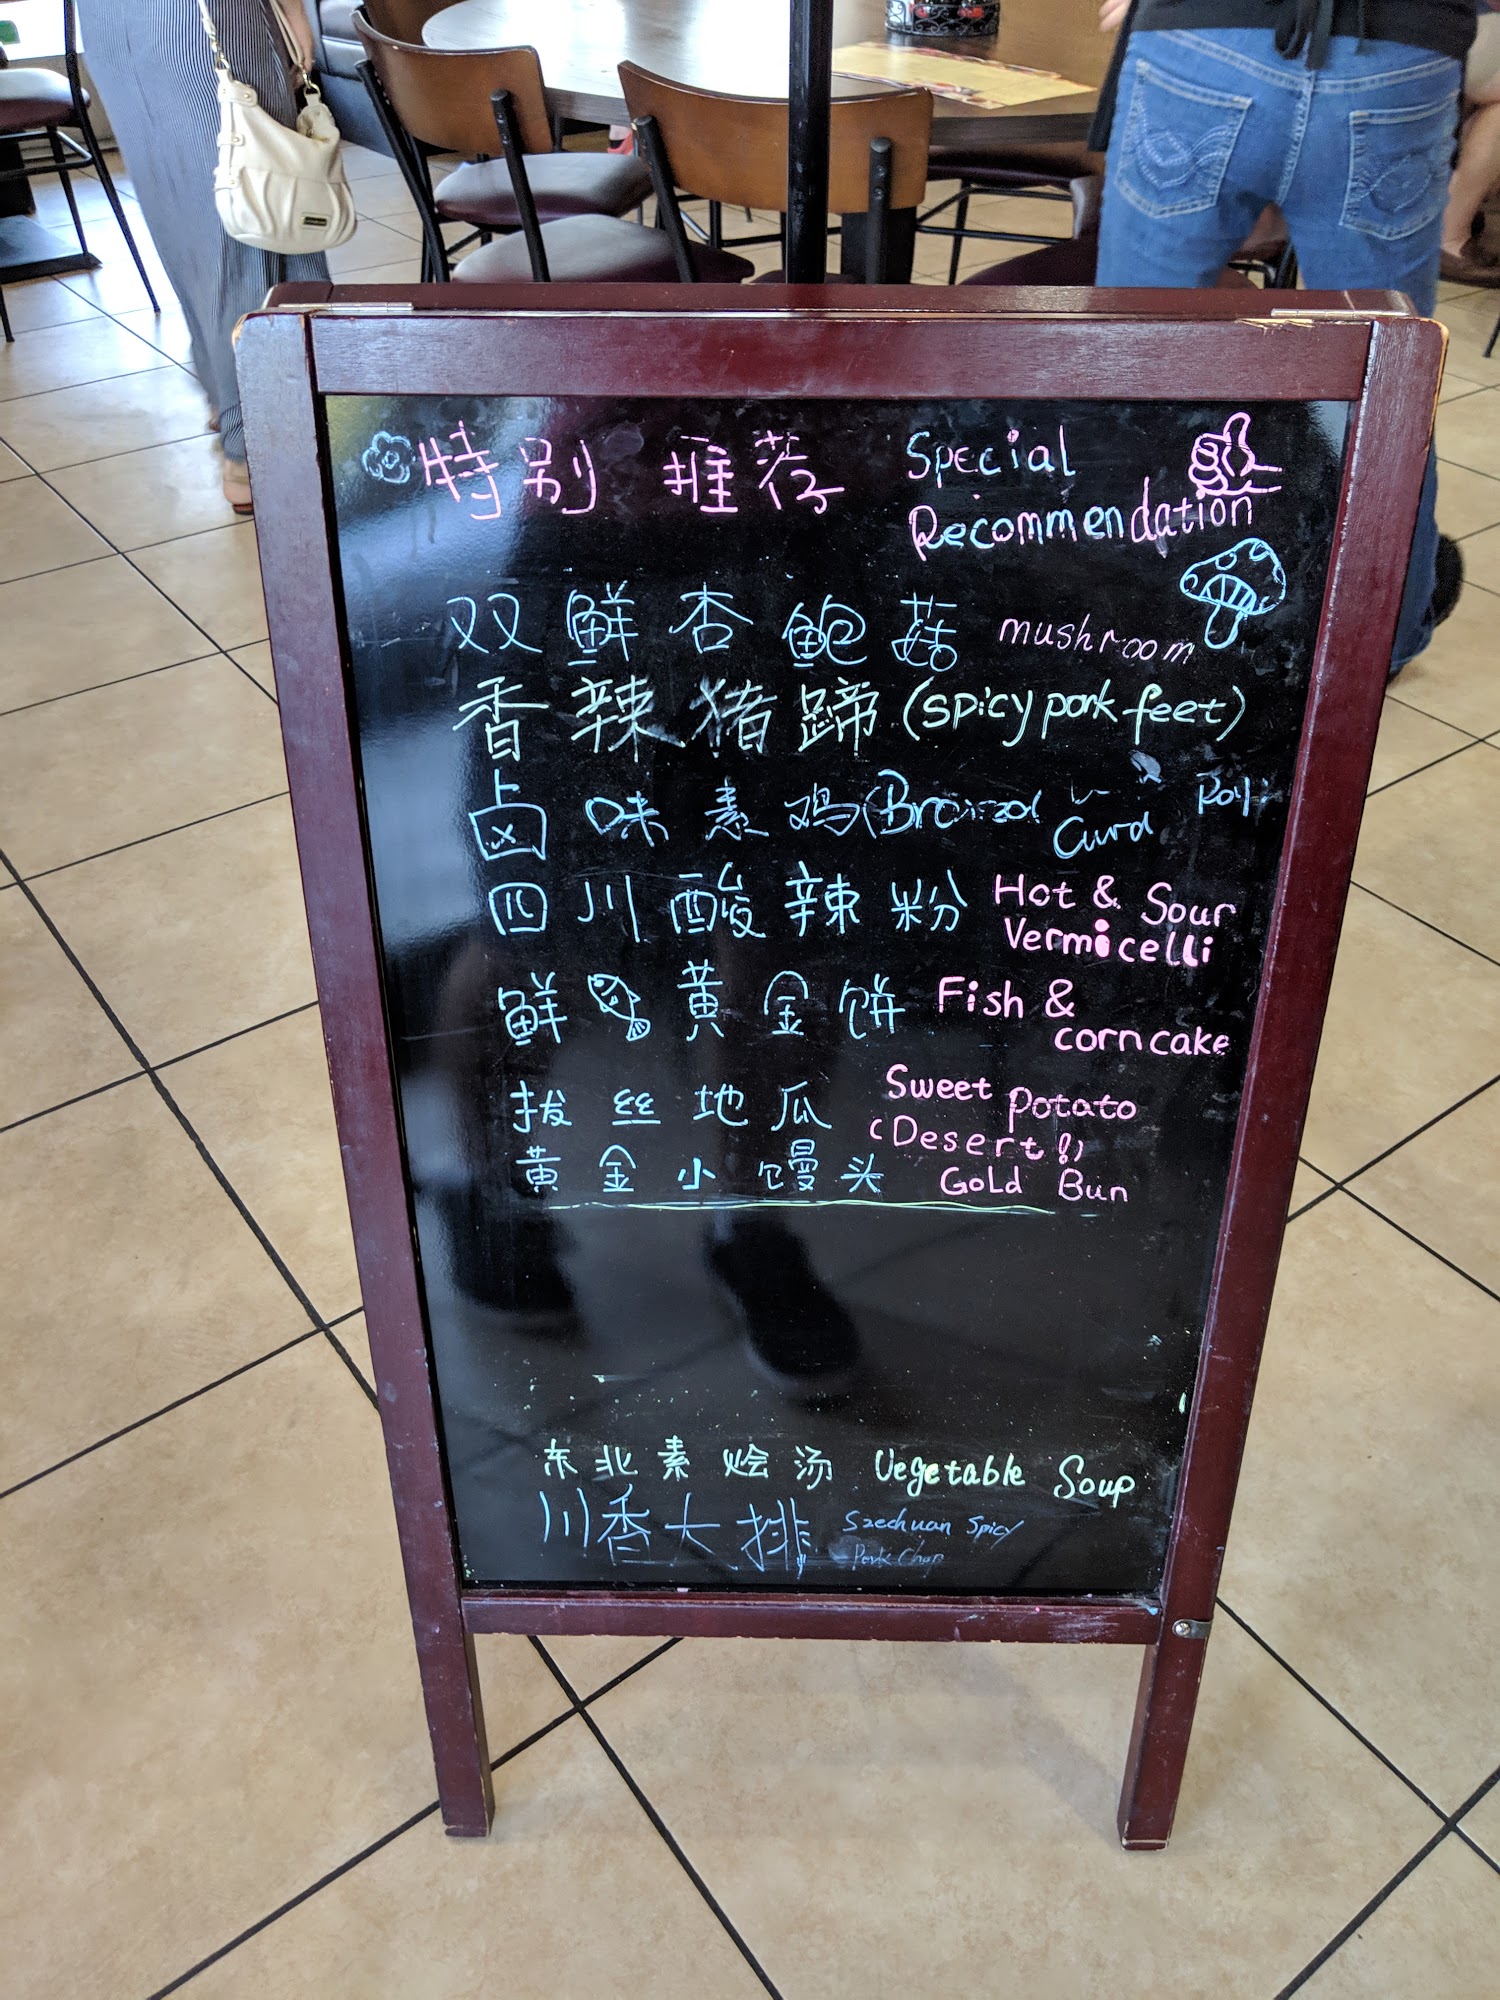 特别 推荐 Special
Recommendation
双鲜杏鲍菇 mushroom
香辣猪蹄 (spicy pork feet)
卤味素鸡 (Curd
四川酸辣粉 Hot & Sour
Vermicelli
鲜 黄金饼 Fish &
corn cake
拔丝地瓜 Sweet potato
(Desert!)
黄金小馒头 Gold Bun
东北素烩汤 Vegetable Soup
川香大排 Szechuan Spicy
Pork Chop